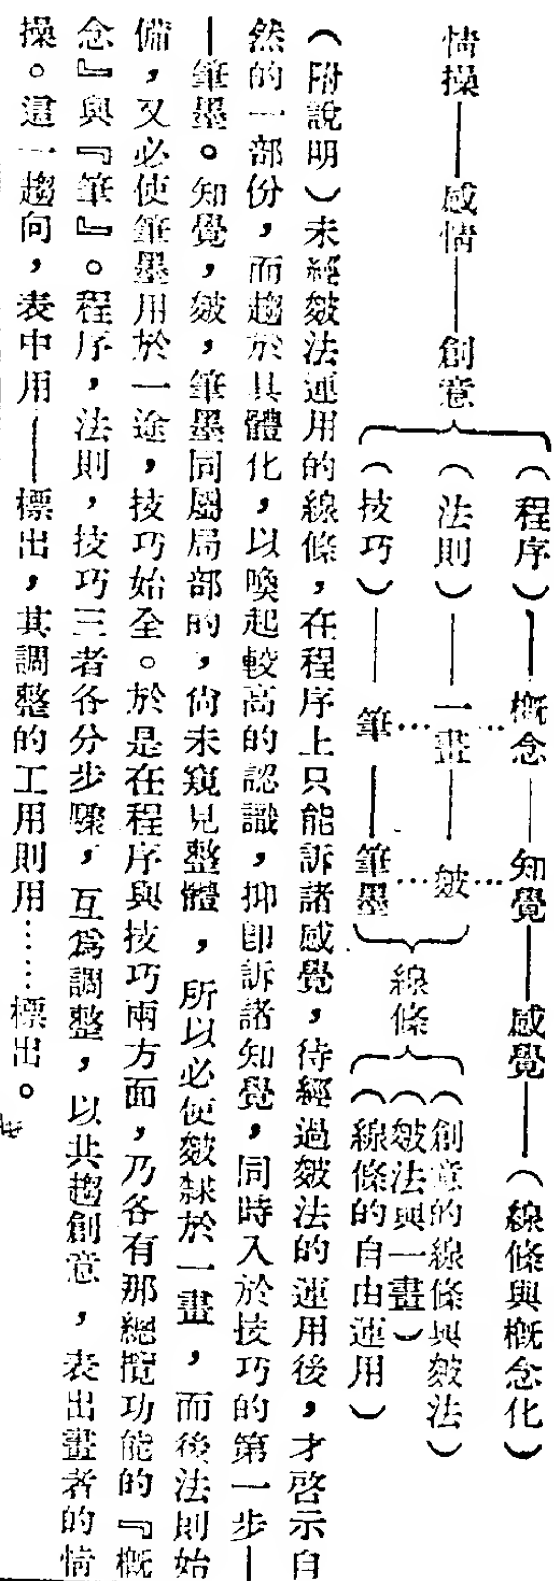 (程序)——概念——知覺——感覺——(線條與概念化)
情操——感情——創意
(法則)——一畫——皴
(技巧)——筆——筆墨
線條
(創意的線條與皴法)
(皴法與一畫)
(線條的自由運用)
(附說明)未經皴法運用的線條,在程序上只能訴諸感覺,待經過皴法的運用後,才啓示自
然的一部份,而趨於具體化,以喚起較高的認識,抑卽訴諸知覺,同時入於技巧的第一步—
—筆墨。知覺,皴,筆墨同屬局部的,尙未窺見整體,所以必使皴隸於一畫,而後法則始
備,又必使筆墨用於一途,技巧始全。於是在程序與技巧兩方面,乃各有那總攬功能的『概
念』與『筆』。程序,法則,技巧三者各分步驟,互爲調整,以共趨創意,表出畫者的情
操。這一趨向,表中用——標出,其調整的工用則用……標出。